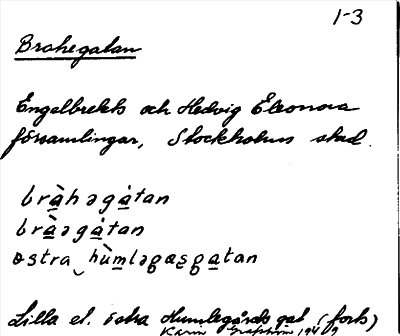 1-3
Brahegatan
Engelbrekts och Hedvig Eleonora
församlingar, Stockholms stad.
bràhəgȧtan
bràəgȧtan
østra‿hùmləgæṣgatan
Lilla el. östra Humlegårdsgat (forts)
Karin 1949